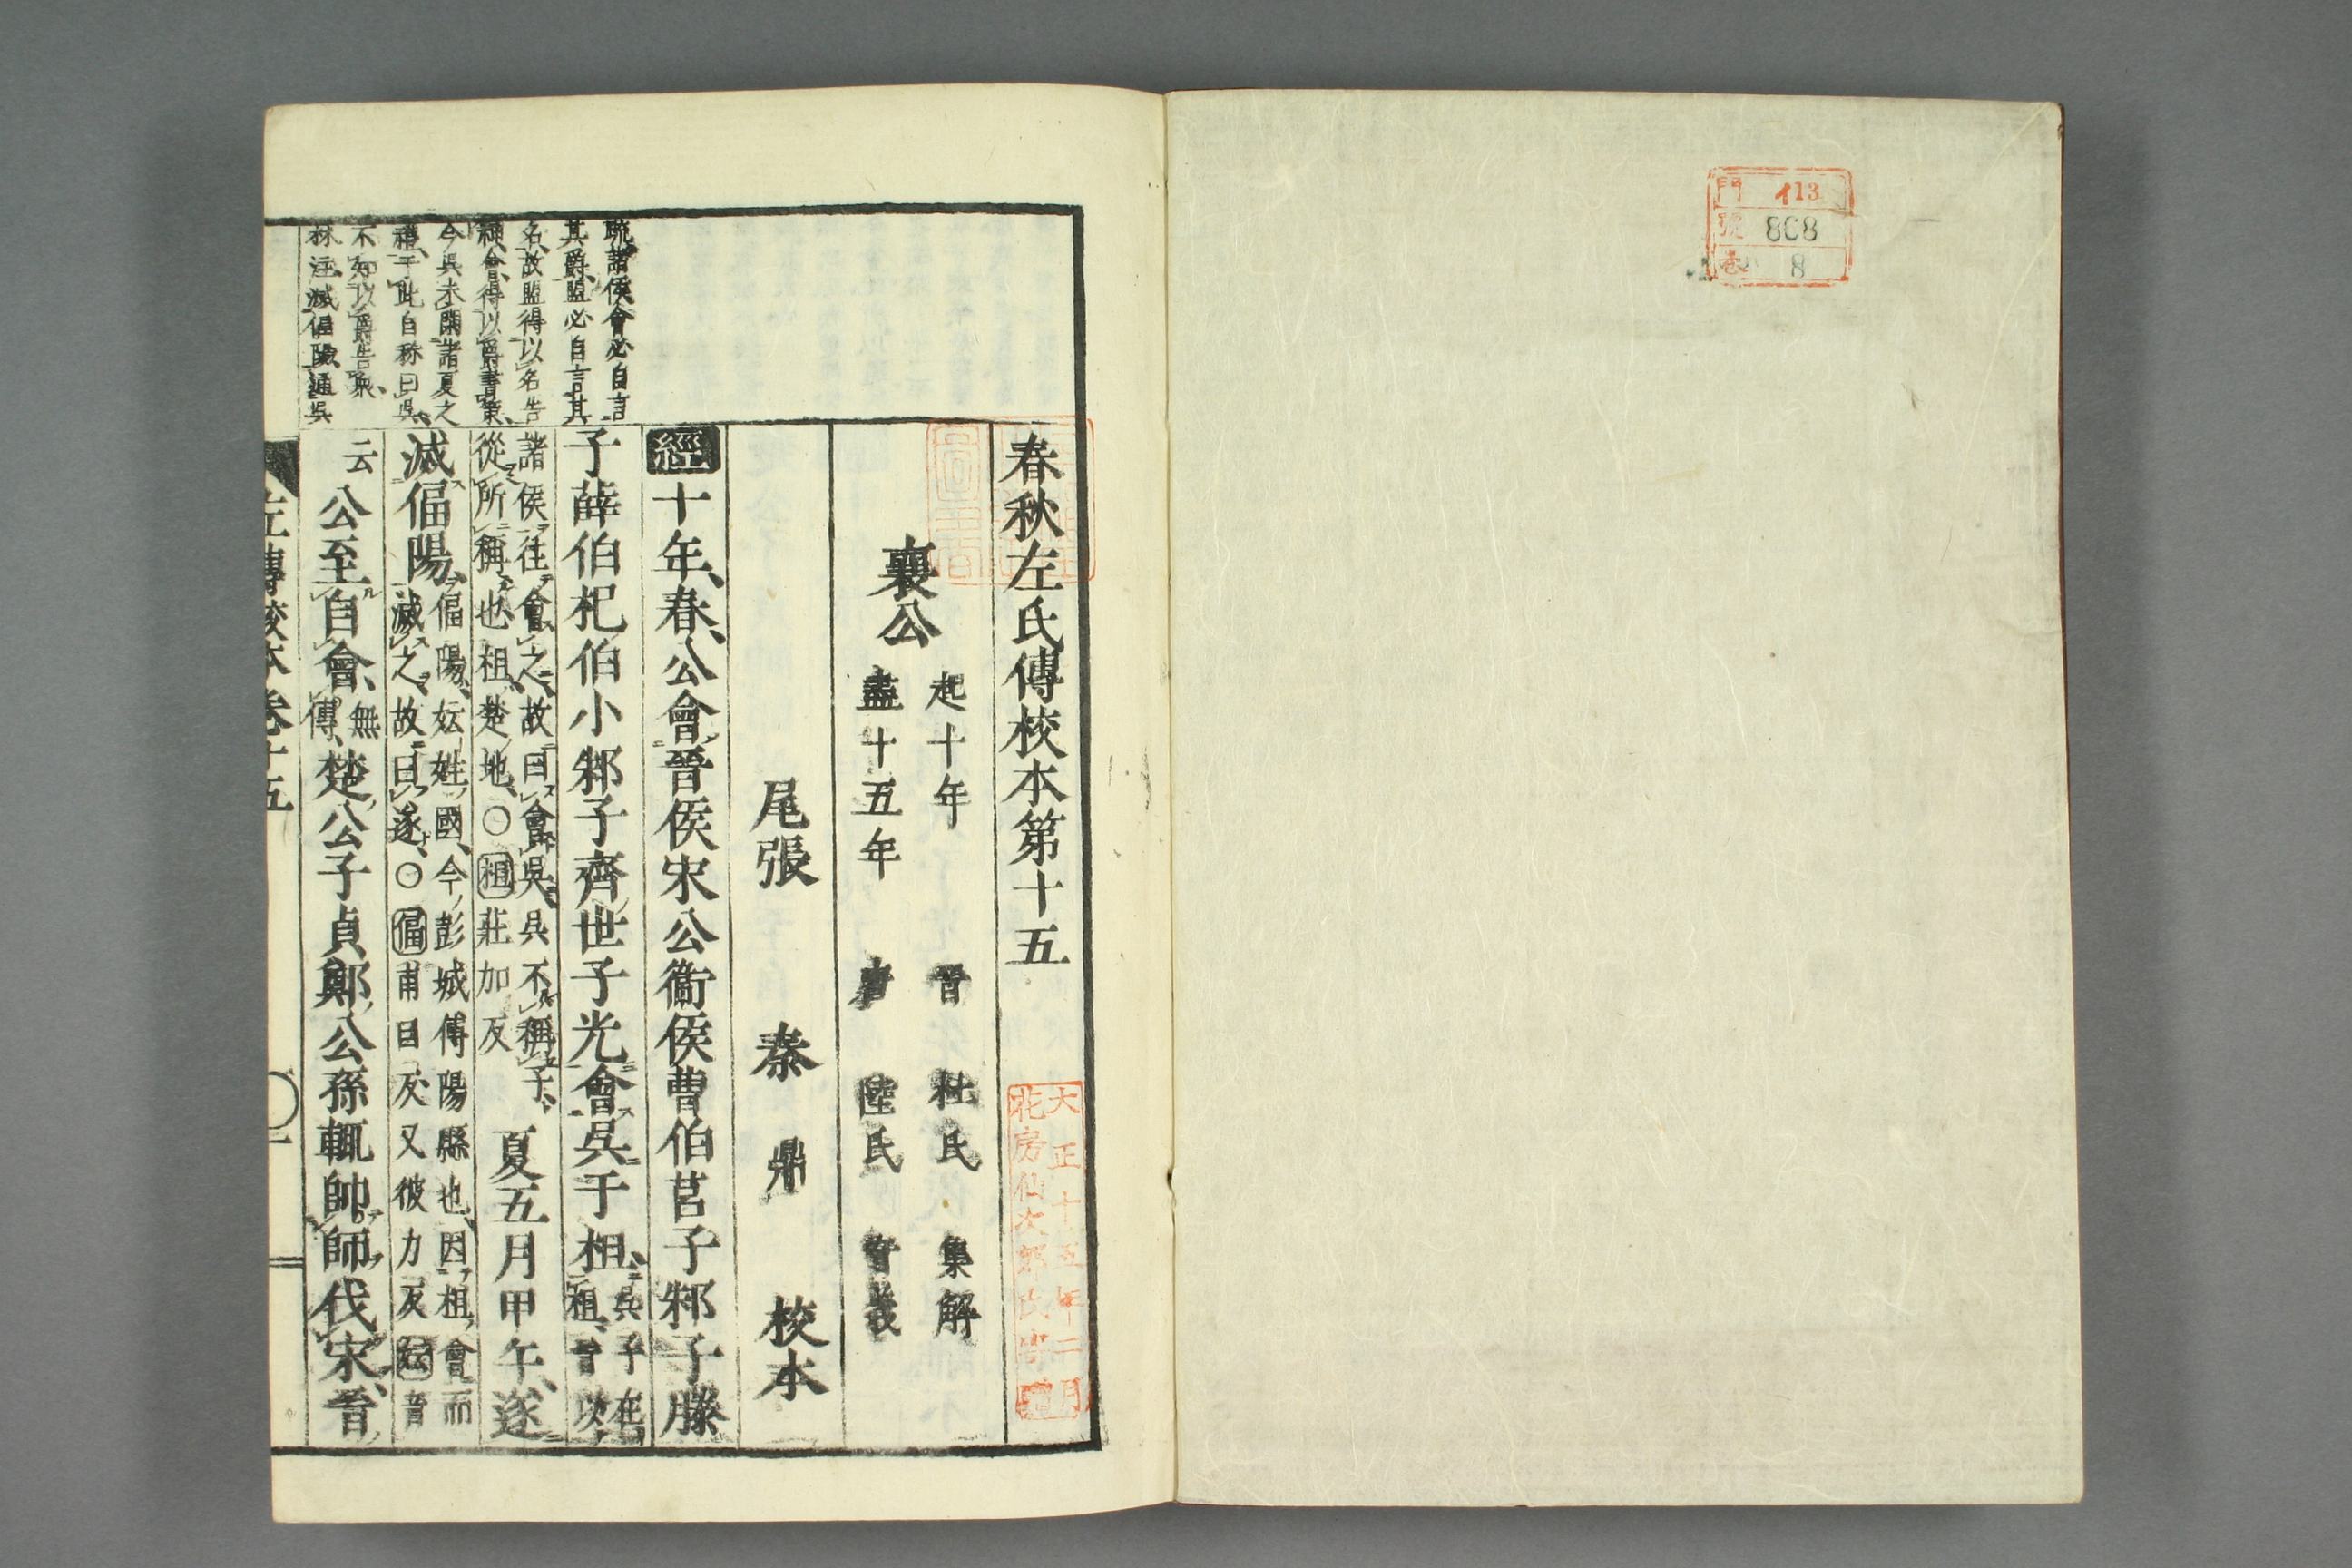 門 イ13
號 808
巻 8
春秋左氏傳校本第十五
大正十五年二月
花房仙次郎氏寄贈
襄公
起十年
盡十五年
晉 杜氏 集解
唐 陸氏 音義
尾張 秦 鼎 校本
經十年、春、公會晉侯宋公衞侯曹伯莒子邾子滕
子薛伯杞伯小邾子齊世子光會吳于柤、
吳子在
柤、晉以
諸侯往會之、故曰會吳、吳不稱子、
從所稱也、柤、楚地、○柤莊加反
夏五月甲午、遂
滅偪陽、
偪陽、妘姓國、今彭城傅陽縣也、因柤會而
滅之、故曰遂、○偪甫目反又彼力反妘音
云
公至自會、
無
傳、
楚公子貞鄭公孫輒帥師伐宋、晉
疏諸侯會必自言
其爵、盟必自言其
名、故盟得以名告
神、會得以爵書策、
今吳未閑諸夏之
禮、于此自称曰吳、
不知以爵告衆、
林注、滅偪陽、通吳
左傳校本卷十五
○一